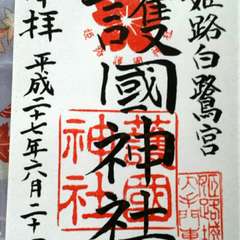 姫路白鷺宮
護國神社
奉拝
平成二十七年六月二十
護國
神社
姫路城
大手門東